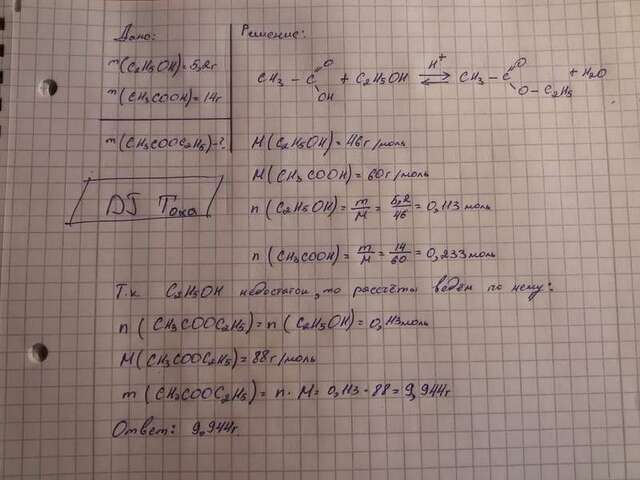 Дано:
m(C₂H₅OH)=5,2г
m(CH₃COOH)=14г
m(CH₃COOC₂H₅)-?
DJ Тоха
Решение:
CH₃ – C(=O)–OH + C₂H₅OH ⇌ (H⁺) CH₃ – C(=O)–O – C₂H₅ + H₂O
M(C₂H₅OH)=46г/моль
M(CH₃COOH)=60г/моль
n(C₂H₅OH)= m/M = 5,2/46 = 0,113 моль
n(CH₃COOH)= m/M = 14/60 = 0,233 моль
Т.к C₂H₅OH недостаток, то рассчёты ведём по нему:
n(CH₃COOC₂H₅)=n(C₂H₅OH)=0,113 моль
M(CH₃COOC₂H₅)=88г/моль
m(CH₃COOC₂H₅)= n · M= 0,113 · 88 = 9,944г
Ответ: 9,944г.